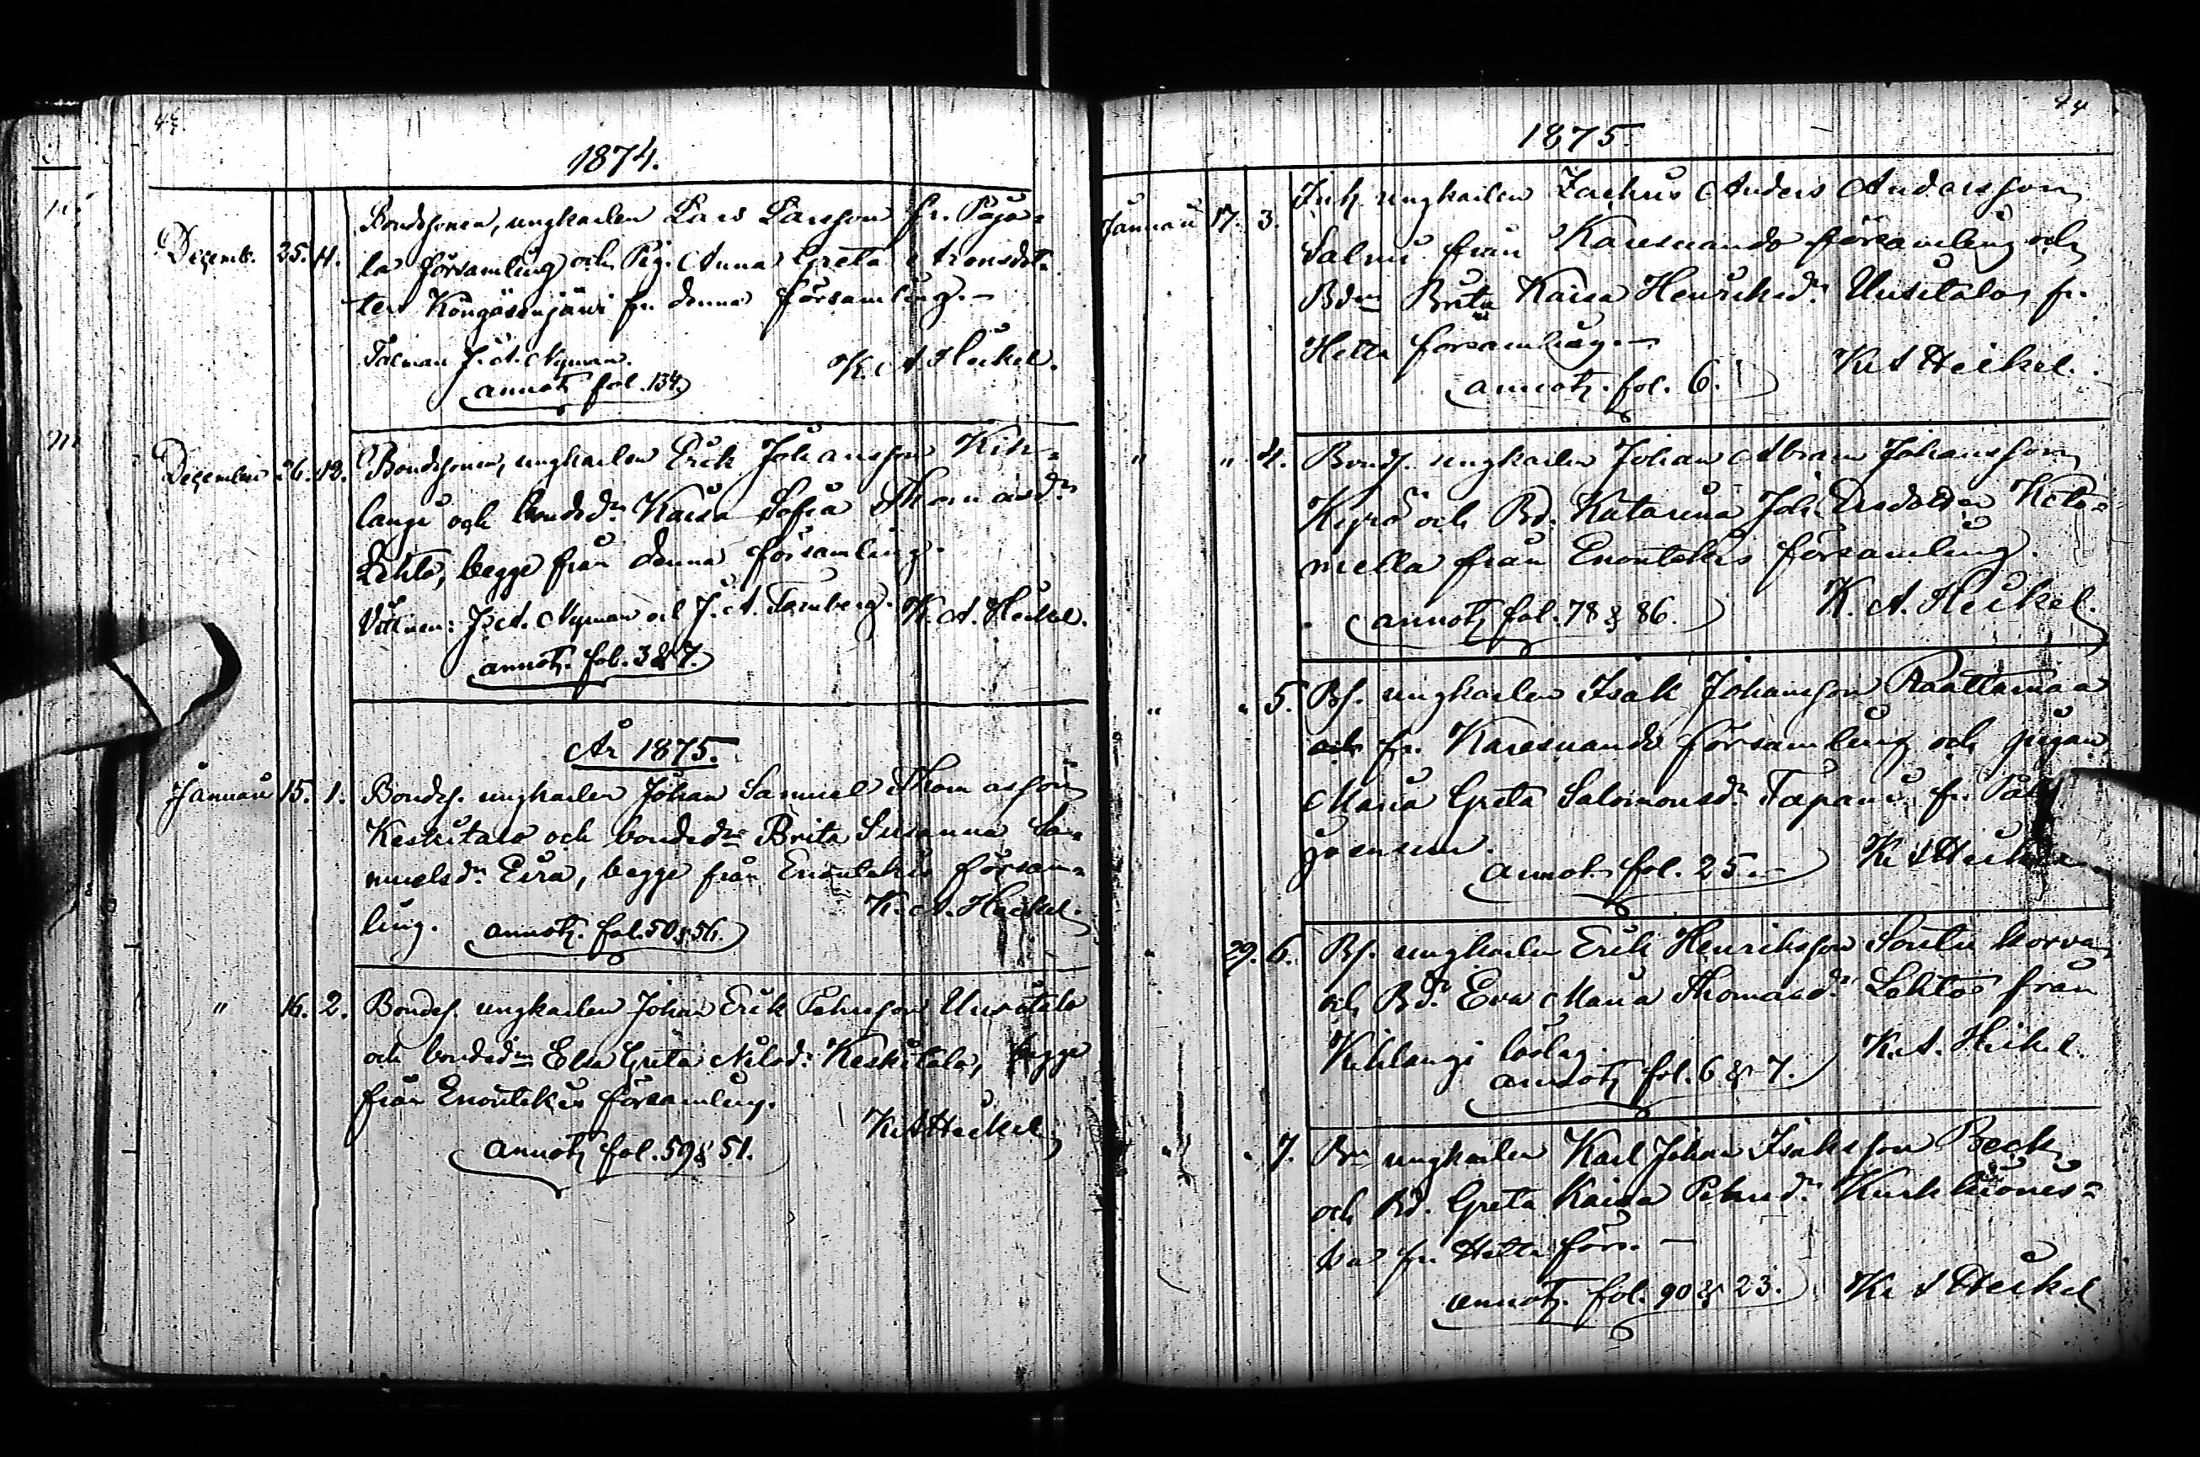 43.
1874.
Decemb. 25. 11. Bondesonen, ungkarlen Lars Larsson fr. Paja-
la församling och Pig. Anna Greta Aronsdot-
ter Kongäsenjärvi fr. denna församling.-
Tolcman J. A. Nyman. K. A Heikel.
annot. fol. 134.
December 26. 13. Bondesonen, ungkarlen Erik Johansson Kih-
langi och bondedr Kaisa Sofia Thomasdr
Lehto, begge från denna församling.
Vittnen: J. A. Nyman och J. A. Tornberg. K. A. Heikel.
annot. fol. 3 & 7.
År 1875.
Januari 15. 1. Bondes. ungkarlen Johan Samuel Thomasson
Keskitalo och bondedr Brita Susanna Sa-
muelsdr Eira, begge från Enontekis försam-
ling. annot. fol. 50 & 56. K. A. Heikel.
" 16. 2. Bondes. ungkarlen Johan Erik Pehrsson Uusitalo
och bondedr Elsa Greta Nilsdr Keskitalo, begge
från Enontekis församling.
annot. fol. 59 & 51. K A Heikel
44
1875.
Januari 17. 3. Inh. ungkarlen Zachris Anders Andersson
Salmi från Karesuando församling och
Bdr Brita Kaisa Henriksdr Uusitalo fr.
Hetta församling.-
annot. fol. 6. K A Heikel.
" " 4. Bonds. ungkarlen Johan Abram Johansson
Kyrö och Bd. Katarina Joh. Ersdotter Keto-
mella från Enontekis församling.
annot. fol. 78 & 86. K. A. Heikel.
" " 5. Bs. ungkarlen Isak Johansson Raattamaa
fr. Karesuando församling och pigan
Maria Greta Salomonsdr Tapani fr.
annot. fol. 25.- K A Heikel
" 29. 6. Bs. ungkarlen Erik Henriksson korva
och Bdr Eva Maria Thomasdr Lehto från
Kihlangi
annot. fol. 6 & 7. K. A. Heikel.
" " 7. Bn ungkarlen Karl Johan Isaksson Beck
och Bd. Greta Kaisa Pehrsdr
fr. Hetta förs.-
annot. fol. 90 & 23. K A Heikel